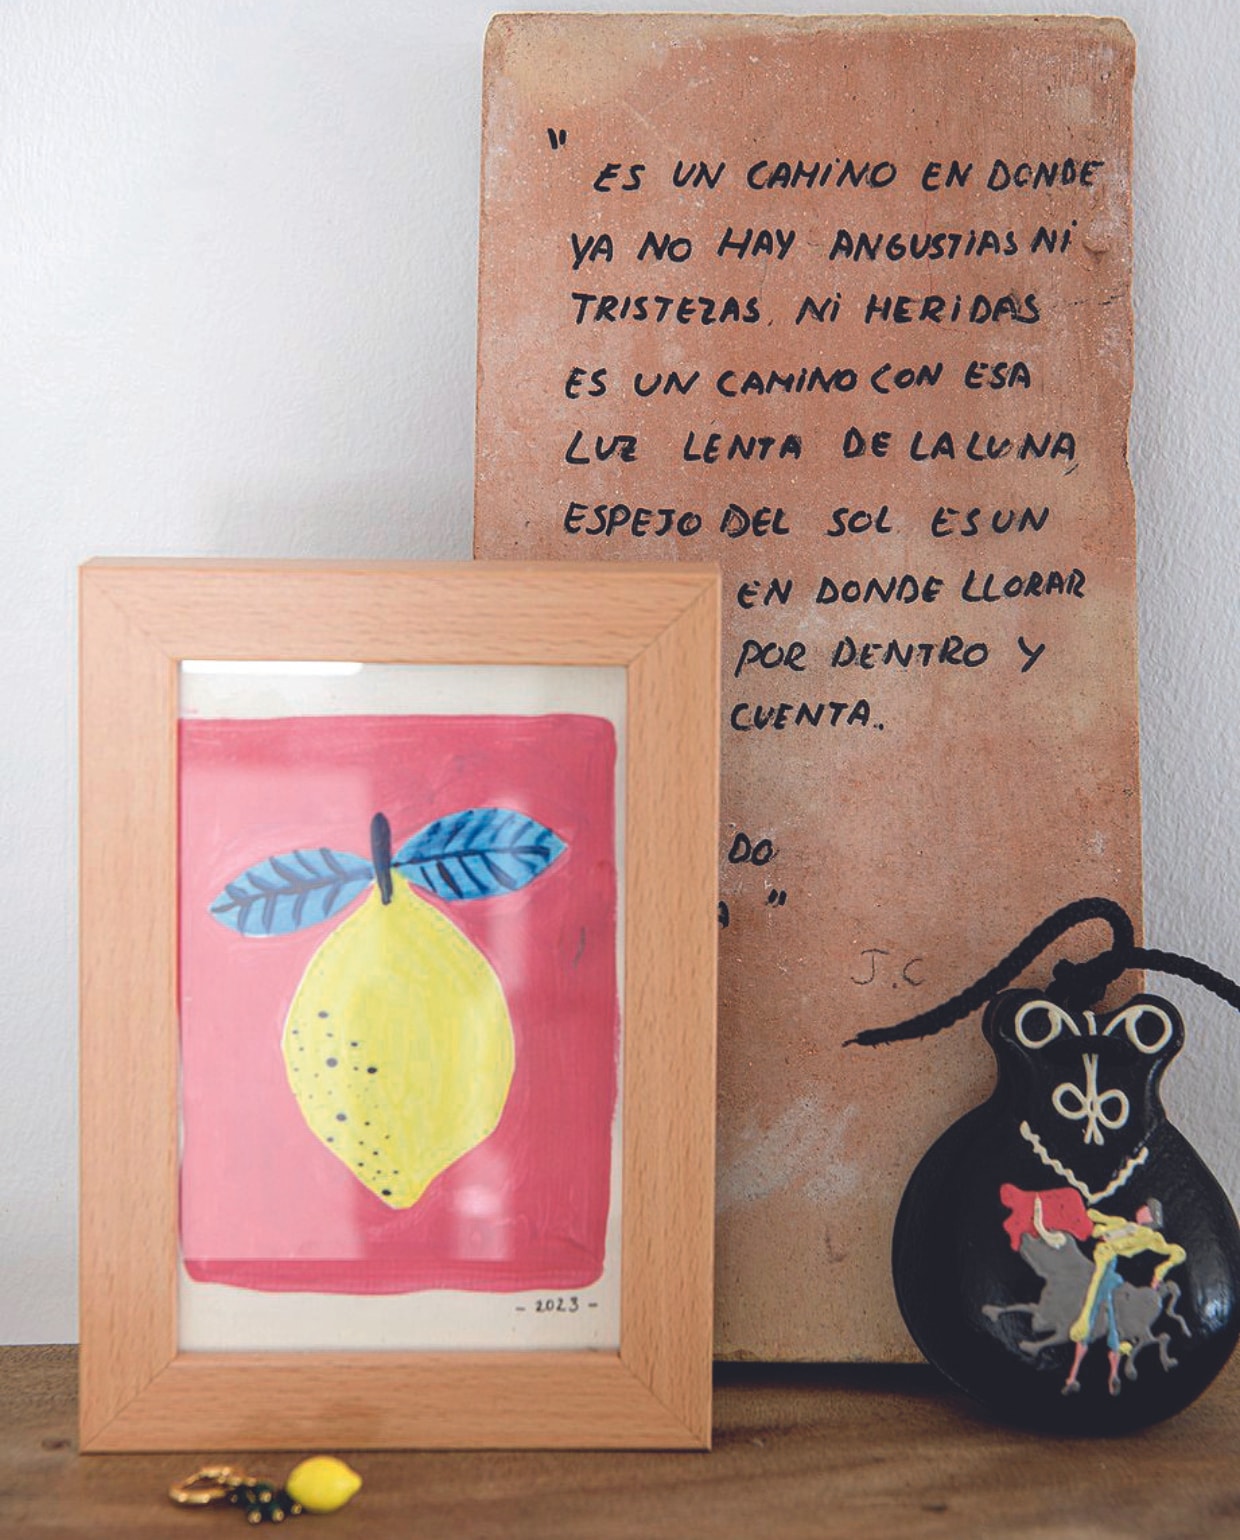 " ES UN CAMINO EN DONDE
YA NO HAY ANGUSTIAS NI
TRISTEZAS, NI HERIDAS
ES UN CAMINO CON ESA
LUZ LENTA DE LA LUNA,
ESPEJO DEL SOL ES UN
EN DONDE LLORAR
POR DENTRO Y
CUENTA..
DO
A "
J.C
- 2023 -